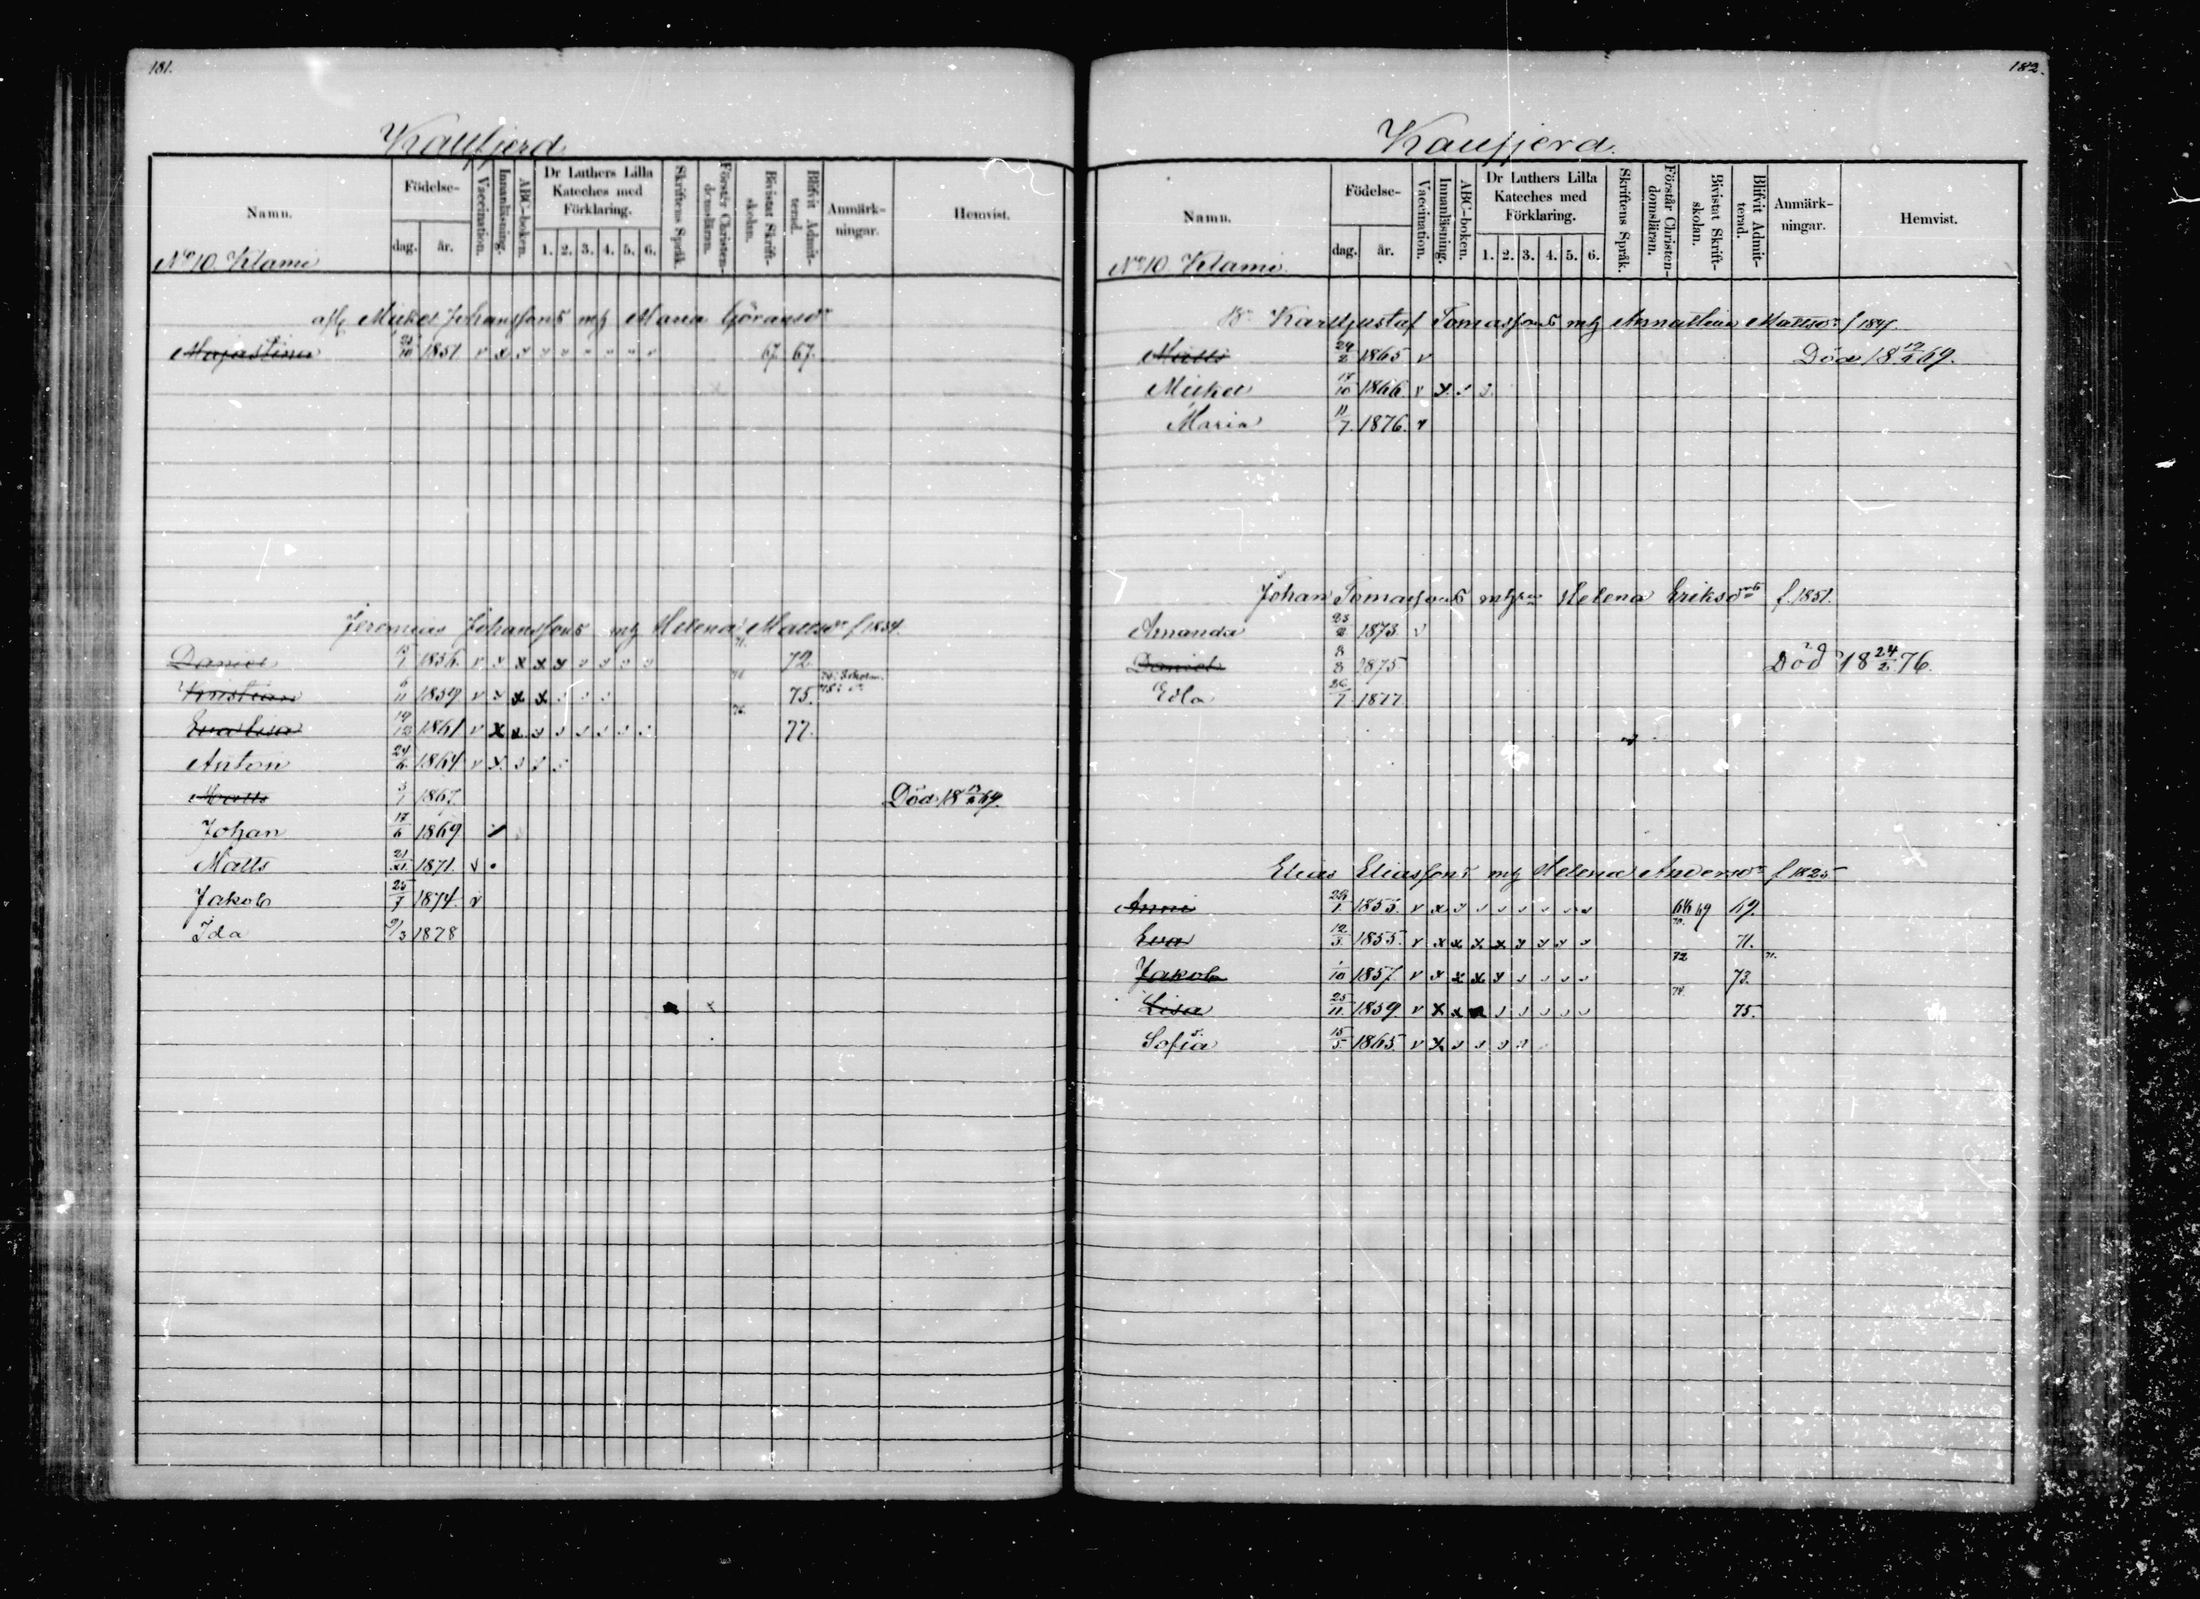 181.
Kaufjerd
Namn.
Födelse-
dag.
år.
Vaccination.
Innanläsning.
ABC-boken.
Dr Luthers Lilla
Kateches med
Förklaring.
1. 2. 3. 4. 5. 6.
Skriftens Språk.
Förstår Christen-
domsläran.
Bivistat Skrift-
skolan.
Blifvit Admit-
terad.
Anmärk-
ningar.
Hemvist.
No 10. Klami
Mickel Johanssons mh Maria Göransdr
Majastina 1851 v x 67. 67.
Jeremias Johanssons mh Helena Mattsdr f 1834.
Daniel 1856. v x x x x 71. 72.
Kristian 6/11 1859 v x x x 75.
Eva Lisa 19/12 1861 v x x 76. 77.
Anton 24/6 1864 v x
Matts 3/1 1867 Död 18 69.
Johan 17/6 1869
Matts 1871. v
Jakob 25/7 1874. v
Ida 9/3 1878
182.
Kaufjerd.
Namn.
Födelse-
dag.
år.
Vaccination.
Innanläsning.
ABC-boken.
Dr Luthers Lilla
Kateches med
Förklaring.
1. 2. 3. 4. 5. 6.
Skriftens Språk.
Förstår Christen-
domsläran.
Bivistat Skrift-
skolan.
Blifvit Admit-
terad.
Anmärk-
ningar.
Hemvist.
No 10 Klami
Karl Gustaf Tomassons mh Annastina Mattsdr f 184
Matts 24/2 1865 v Död 18 69.
Mickel 17/10 1866. v x
Maria 11/7. 1876. v
Johan Tomassons Helena Eriksdrs f. 1851.
Amanda 1873. v
Daniel 8/8 1875 Död 18 24/2 76.
Edla 26/7 1877
Elias Eliassons mh Helena Andersdr f 1825
Anni 1. 1853. v x 68 69 69.
Eva 12/3. 1855. v x x x x 70. 71.
Jakob 1/10 1857 v x x x 72 73.
Lisa 25/11. 1859. v x x 74. 75.
Sofia 15/5. 1865. v x